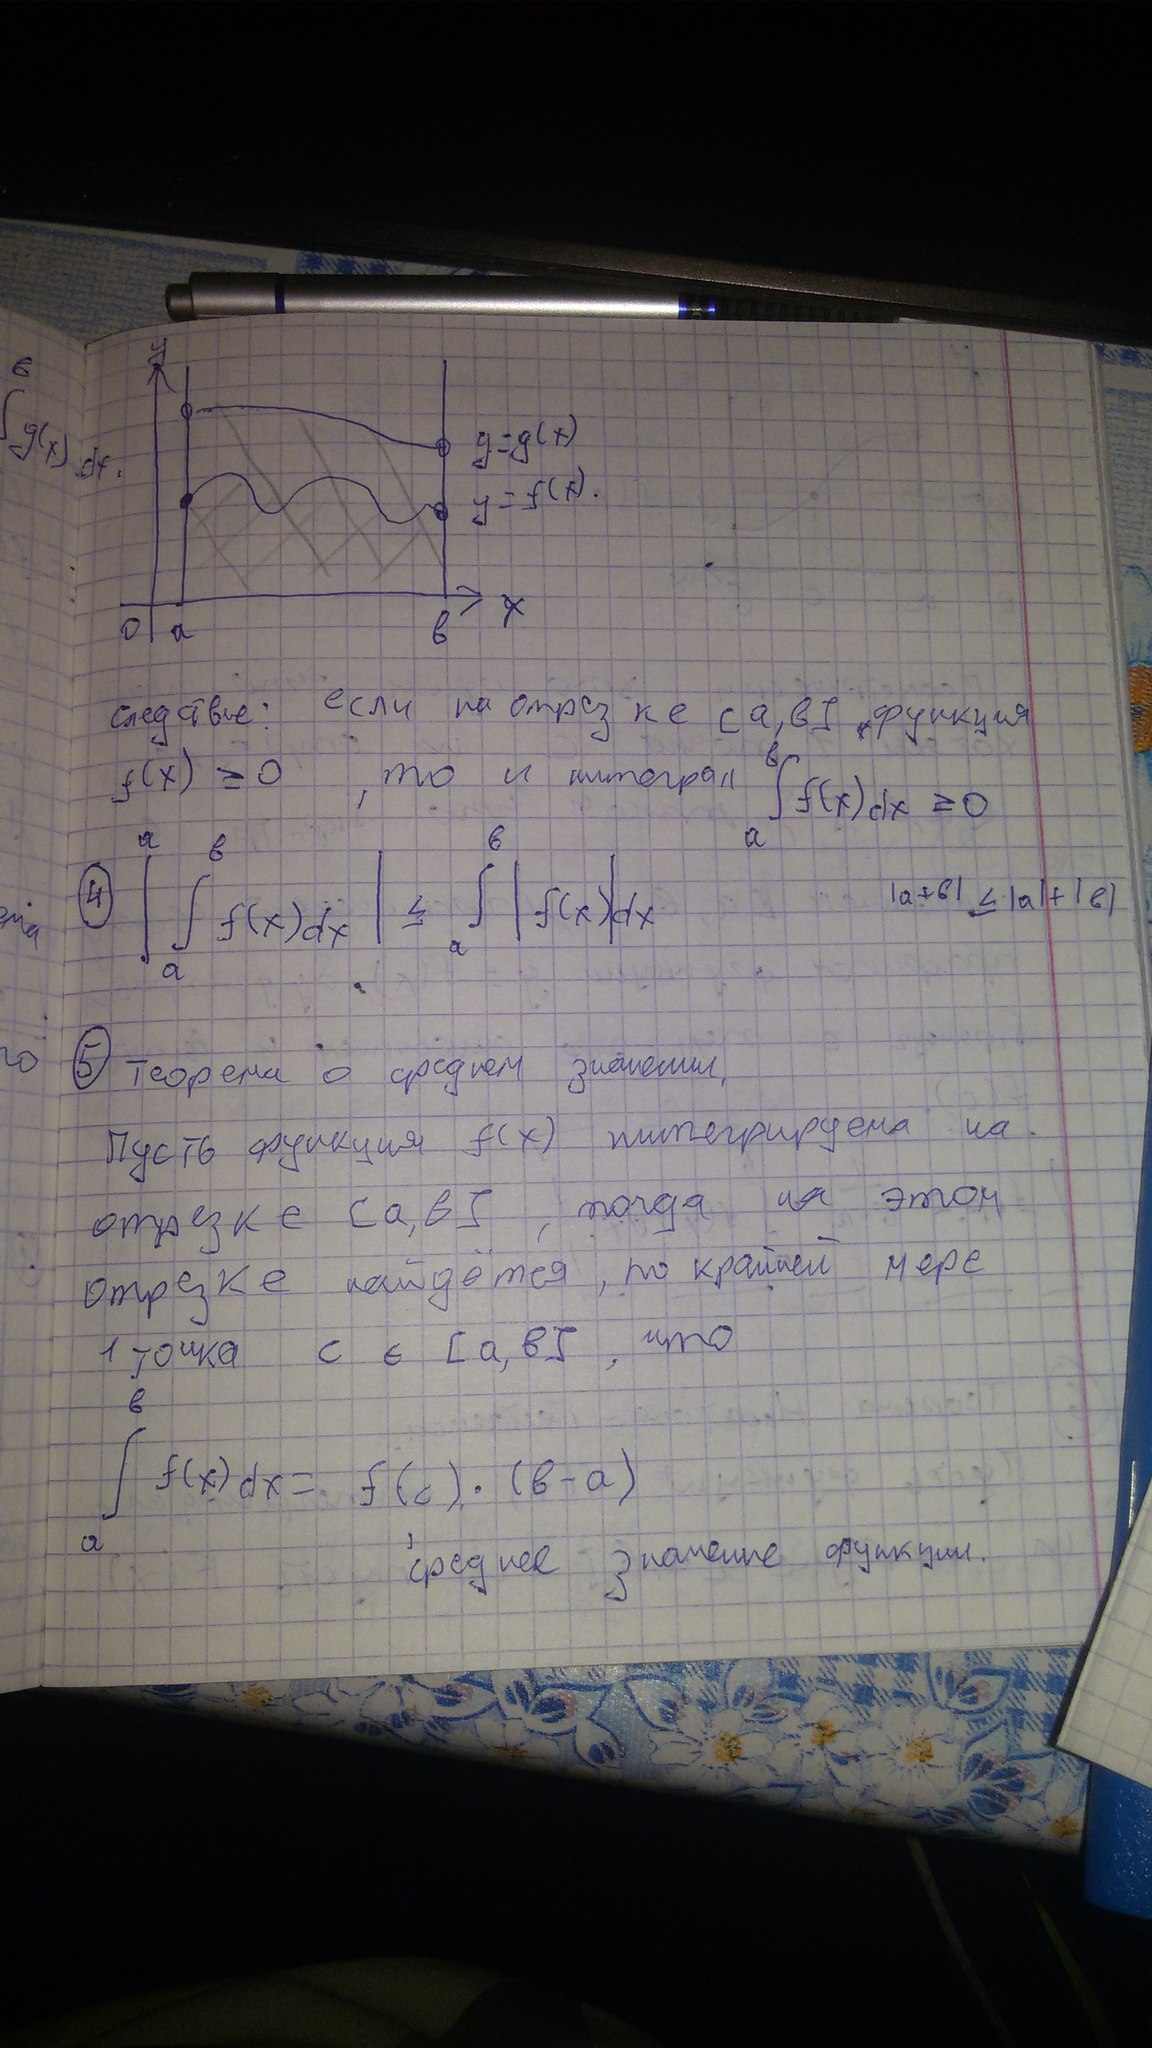 в
∫ g(x) dx.
y
y=g(x)
y=f(x).
0 a в x
следствие: если на отрезке [a,в] функция
f(x) ≥ 0 , то и интеграл ∫ₐᵇ f(x)dx ≥ 0
④ | ∫ₐᵇ f(x)dx | ≤ ∫ₐᵇ |f(x)|dx |a+в| ≤ |a|+|в|
⑤ Теорема о среднем значении.
Пусть функция f(x) интегрируема на
отрезке [a,в] , тогда на этом
отрезке найдётся, по крайней мере
1 точка c ∈ [a,в] , что
∫ₐᵇ f(x)dx = f(c) · (в-a)
среднее значение функции.